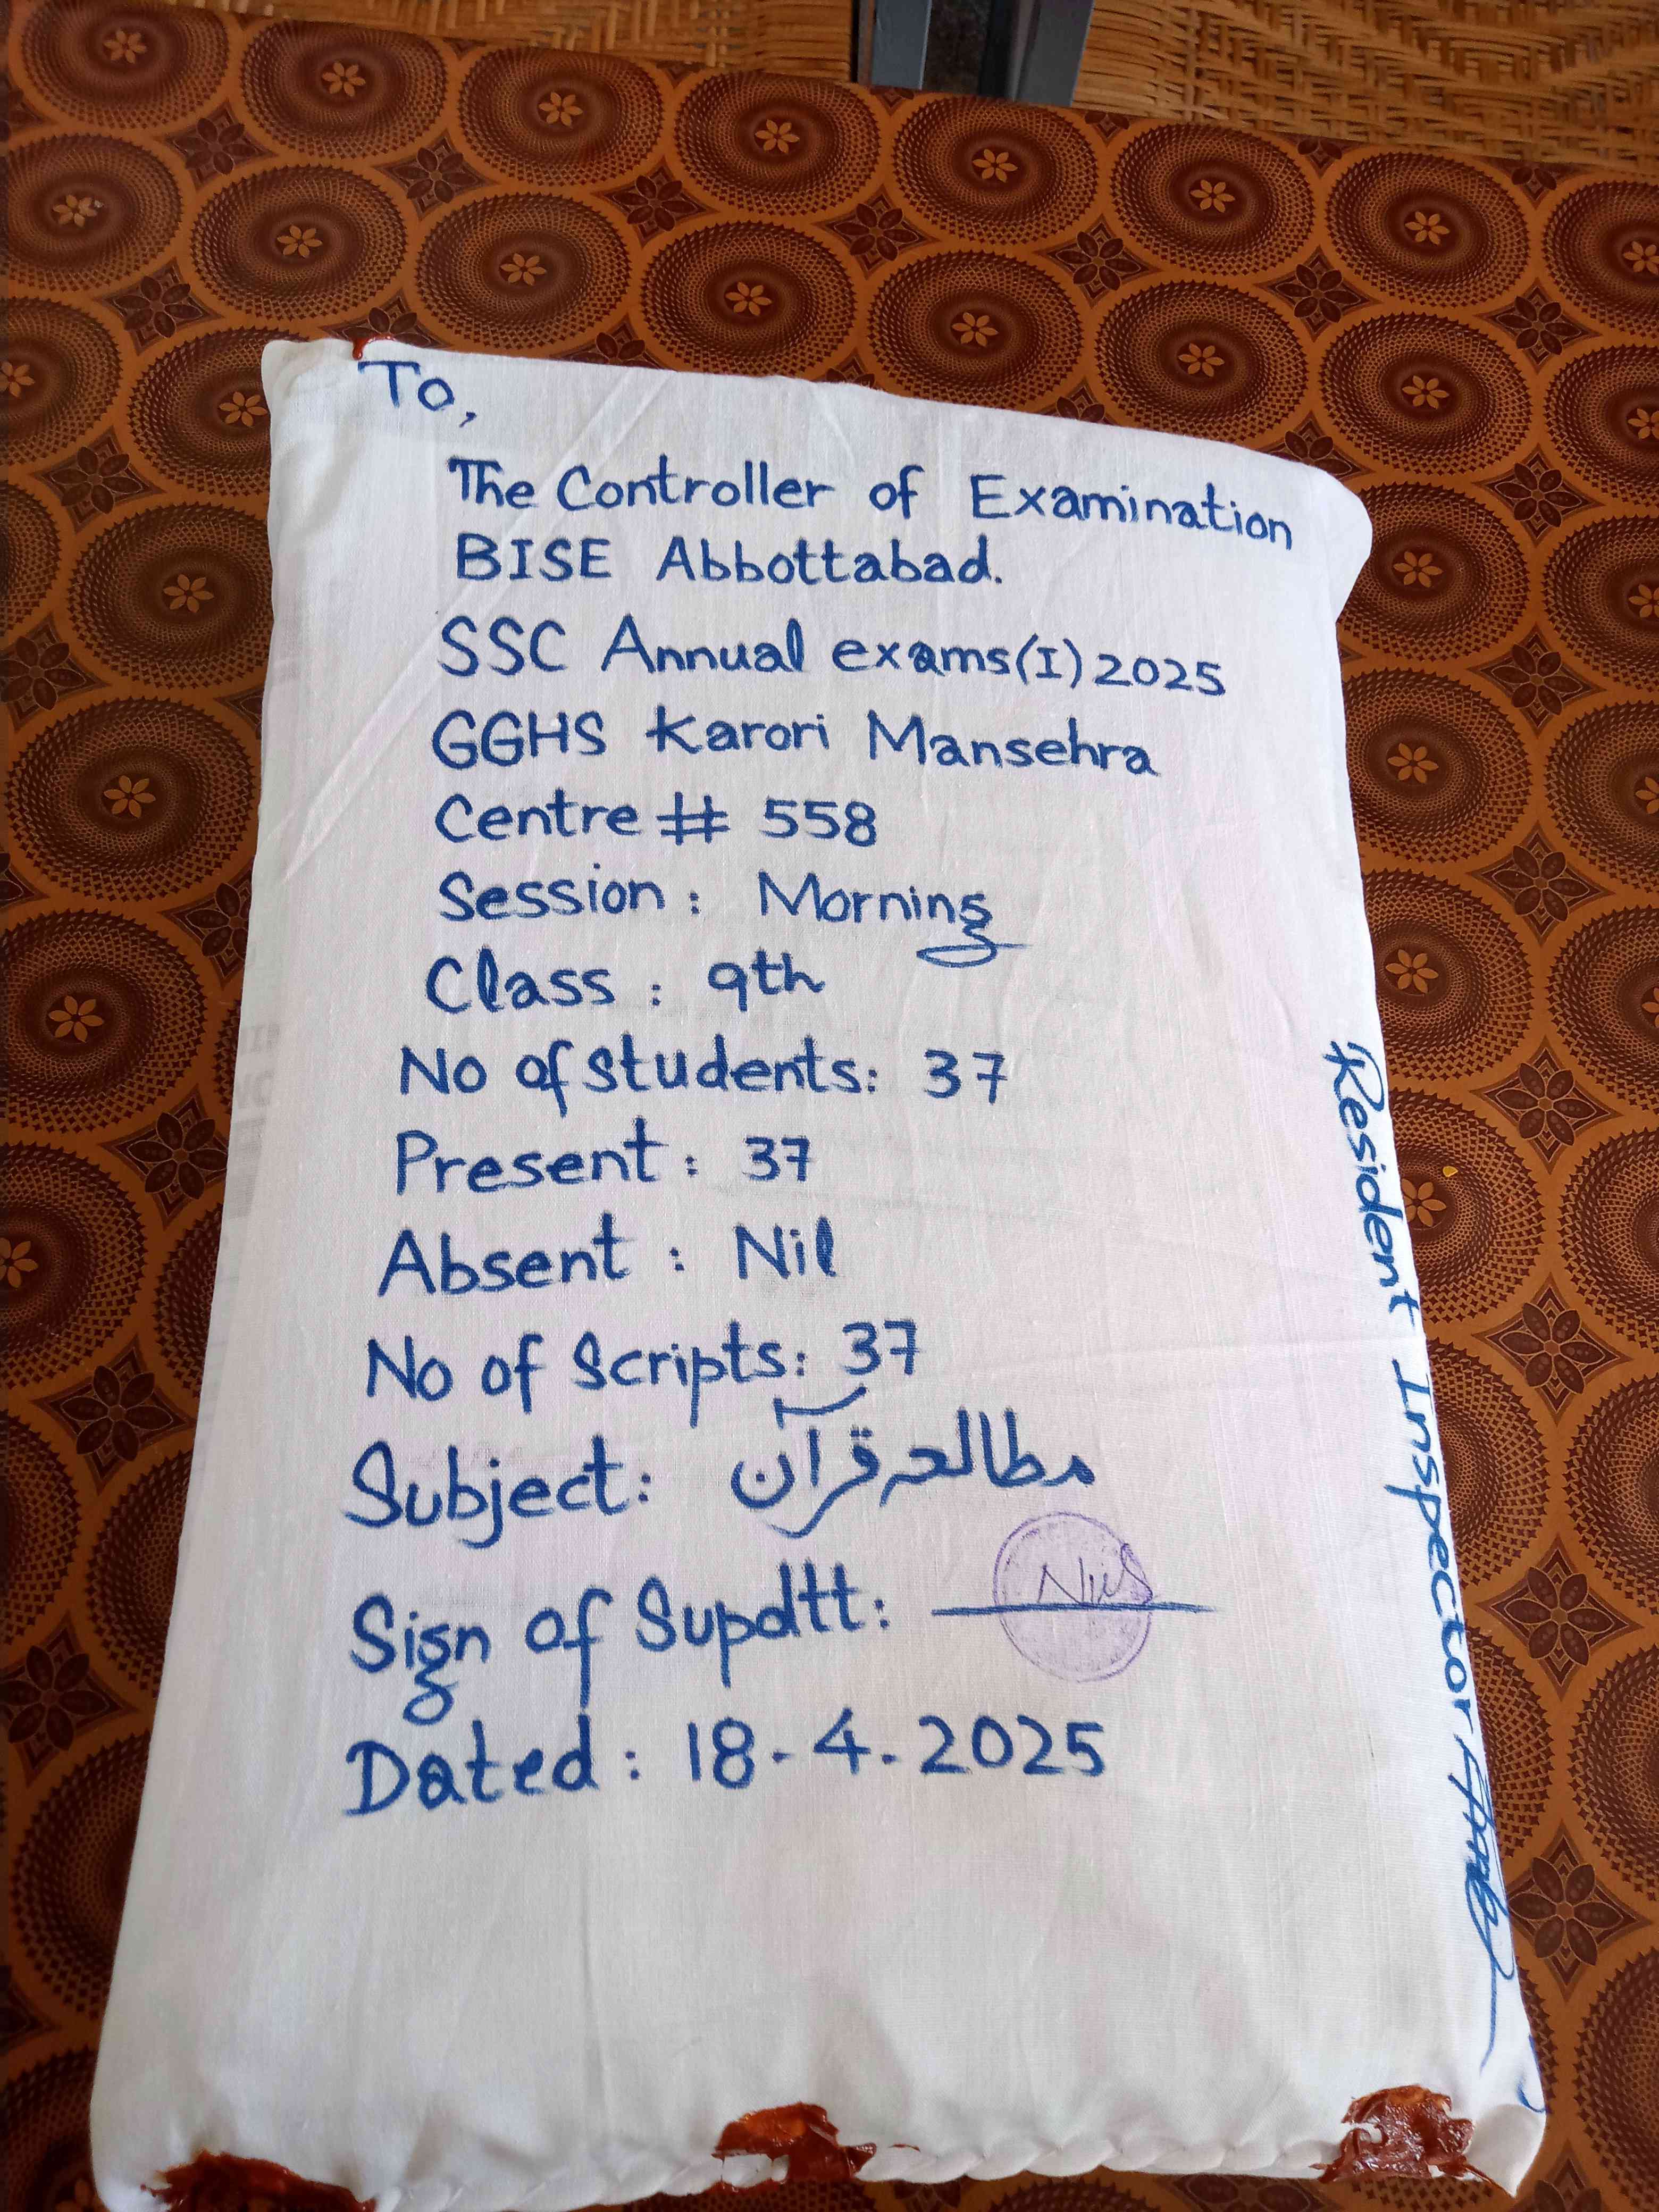 To,
The Controller of Examination
BISE Abbottabad.
SSC Annual exams(I) 2025
GGHS Karori Mansehra
Centre # 558
Session : Morning
Class : 9th
No of students: 37
Present : 37
Absent : Nil
No of Scripts: 37
Subject: مطالعہ قرآن
Sign of Supdtt:
Dated : 18-4-2025
Resident Inspector